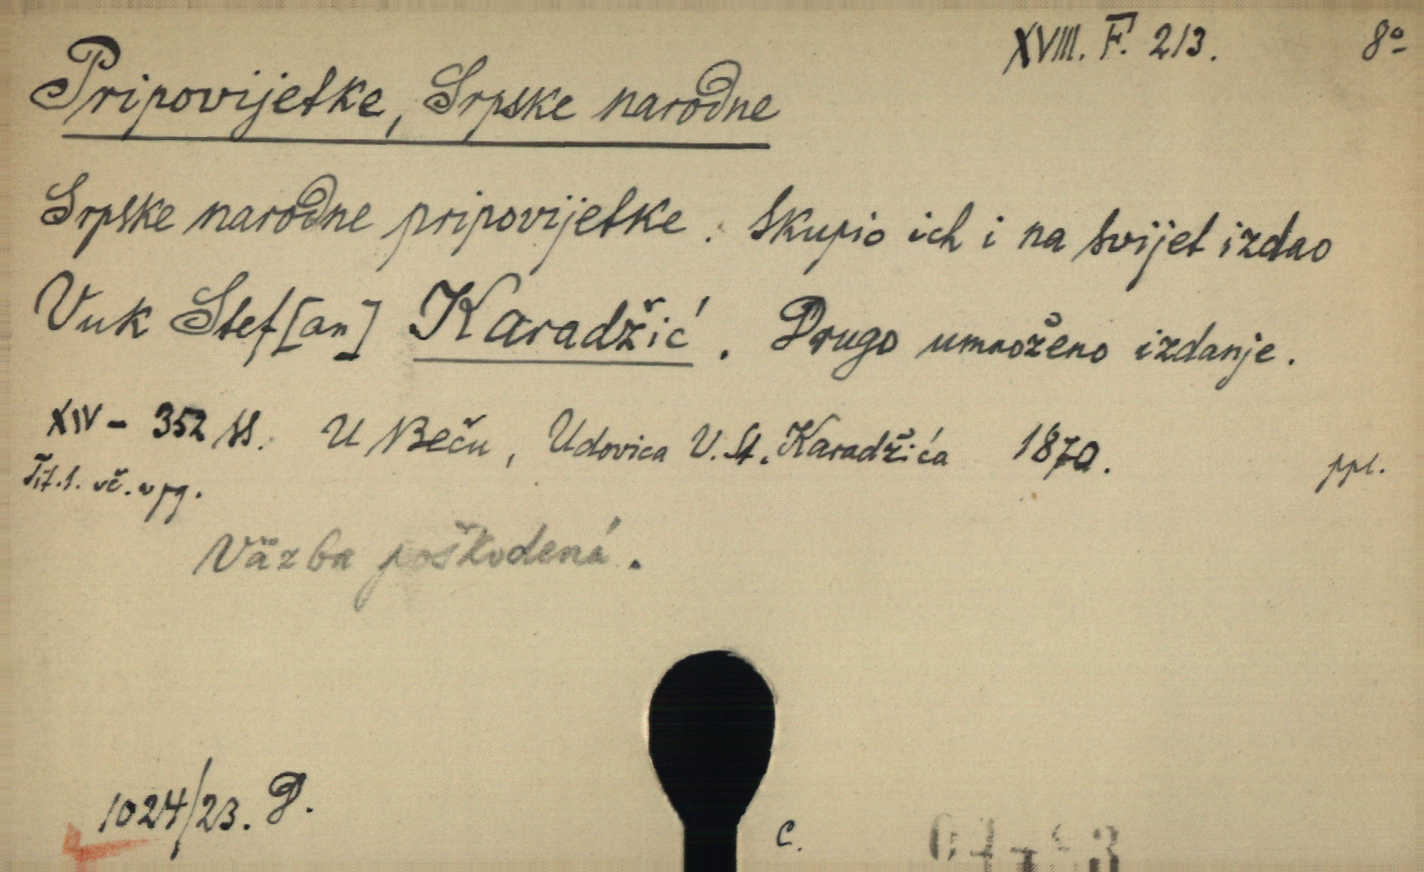 XVIII. F. 213. 8º
Pripovijetke, Srpske narodne
Srpske narodne pripovijetke. Skupio ich i na svijet izdao
Vuk Stef[an] Karadžić. Drugo umnoženo izdanje.
XIV - 352 ss. U Beču, Udovica V. St. Karadžića 1870.
ppl.
Tit. l. vč. v pg.
Väzba poškodená.
1024/23. D.
C.